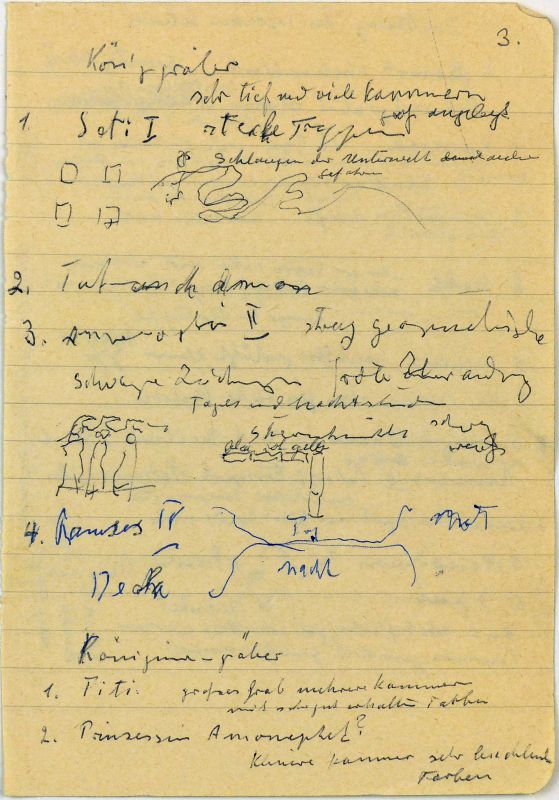 3.
Königgräber
sehr tief und viele Kammern
1. Seti I steile Treppen
Schlangen der Unterwelt
2. Tut-anch-amon
3. Amenophis II streng geometrische
schwarze Zeichnungen
Tages und Nachtstunden
Sternenhimmel schwarz
blau gelb weiß
4. Ramses IV Tag Nut
Decke Nacht
Königinnen-gräber
1. Titi. großes Grab mehrere Kammern
mit sehr gut erhalten Farben
2. Prinzessin ?
kleinere Kammer sehr
Farben